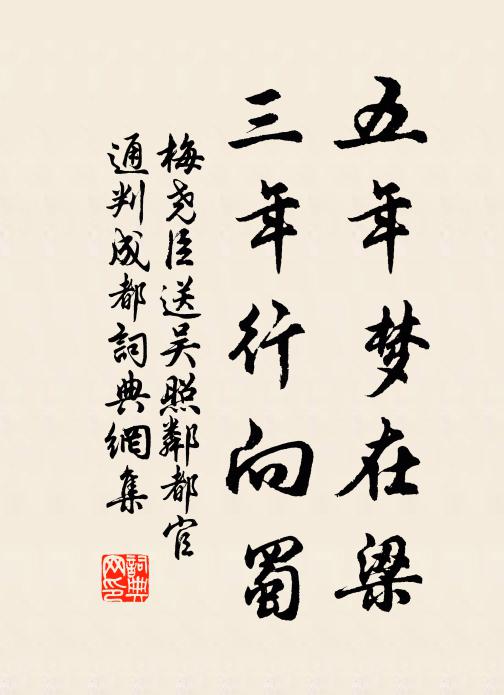 五年梦在梁
三年行向蜀
梅尧臣送吴照鄰都官
通判成都詞典網集
詞典网印